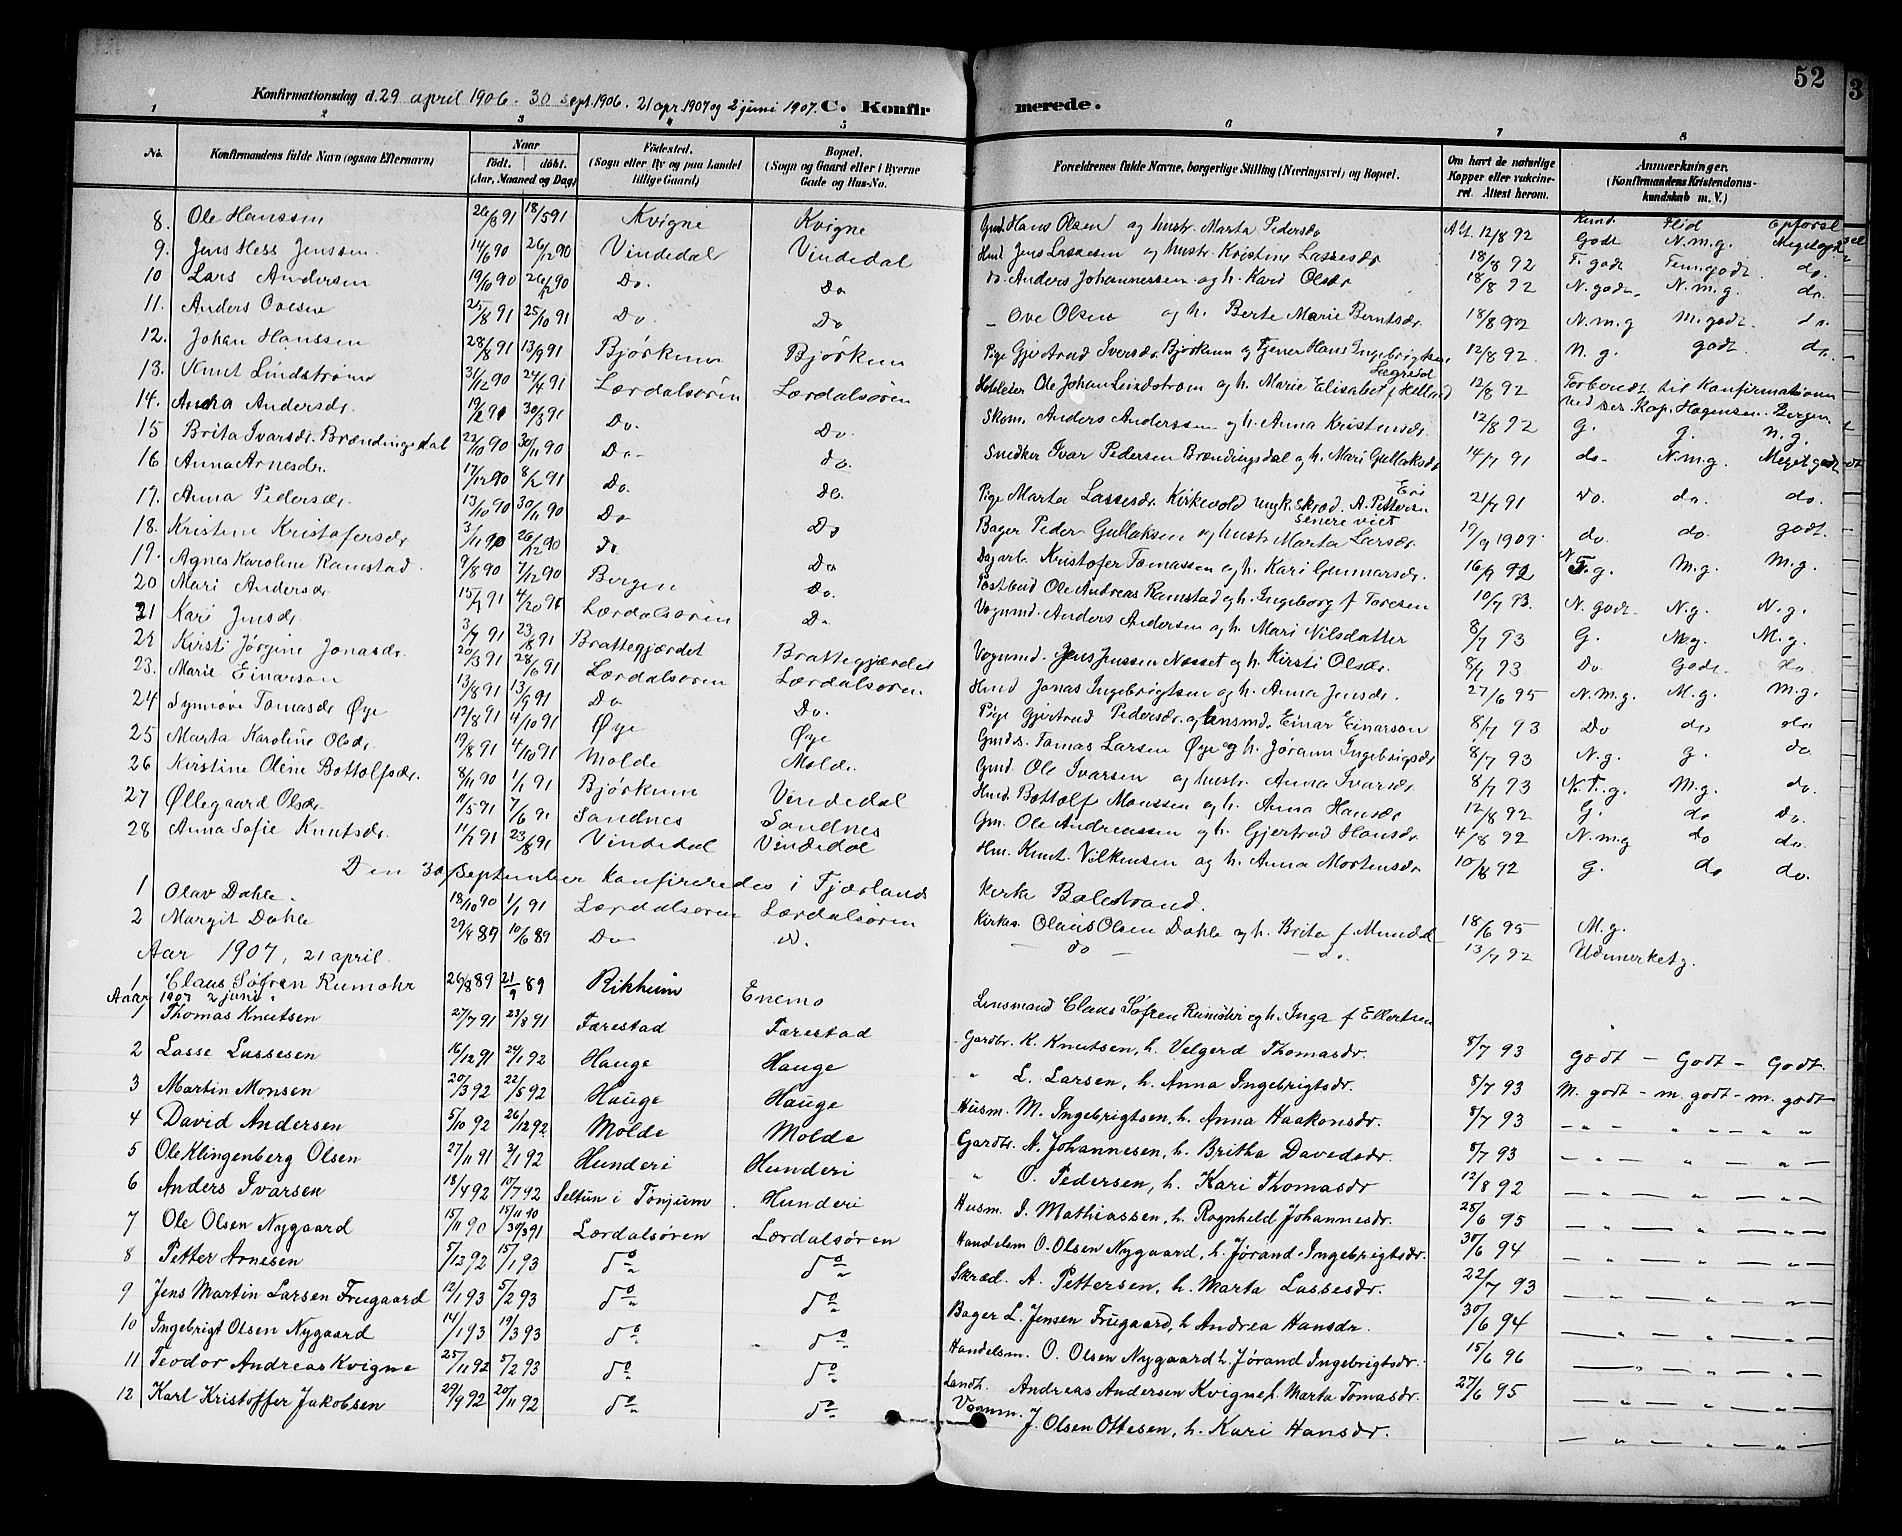 52
3
Konfirmationsdag d. 29 april 1906. 30 sept. 1906. 21 apr. 1907 og 2 juni 1907. C. Konfirmerede.
1 2 3 4 5 6 7 8
No. Konfirmandens fulde Navn (ogsaa Efternavn) Naar født. døbt. (Aar, Maaned og Dag) Fødested. (Sogn eller By og paa Landet tillige Gaard) Bopæl. (Sogn og Gaard eller i Byerne Gade og Hus-No. Forældrenes fulde Navne, borgerlige Stilling (Næringsvei) og Bopæl. Om havt de naturlige Kopper eller vakcineret. Attest herom. Anmærkninger. (Konfirmandens Kristendomskundskab m. V.)
Kund Flid Opførsel
8. Ole Hanssen 26/3 91 18/5 91 Kvigne Kvigne Gmd Hans Olsen og hustr. Marta Pedersdr Att. 12/8 92 Godt N.m.g. Megetgodt
9. Jens Hess Jenssen 14/6 90 26/12 90 Vindedal Vindedal Hmd Jens Lassesen og hustr. Kristine Lassesdr 18/8 92 T. godt Tem.godt do.
10 Lars Andersen 19/10 90 26/12 90 Do. Do do. Anders Johannessen og h. Kari Olsdr 18/8 92 N. godt. N.m.g. do.
11. Anders Ovesen 25/8 91 25/10 91 Do. Do — Ove Olsen og h. Berte Marie Berntsdr. 18/8 92 N.m.g M.godt. do.
12. Johan Hanssen 28/8 91 13/9 91 Bjørkum Bjørkum Pige Gjertrud Iversdr. Bjørkum og Tjener Hans Ingebrigtsen Lægreid 12/8 92. N. g. godt. do.
13. Knut Lindstrøm 31/12 90 24/4 91 Lærdalsøren Lærdalsøren Hoteleier Ole Johan Lindstrøm og h. Marie Elisabet f Helland 12/8 92 Forberedt til Konfirmationen ved res. Kap. Hagensen. Bergen
14. Anna Andersdr. 19/2 91 30/3 91 Do. Do. Skom. Anders Anderssen og h. Anna Kristensdr. 12/8 92 g. g. n.g.
15 Brita Ivarsdr. Brændingsdal 22/10 90 30/11 90 Do- do. Snedker Ivar Pedersen Brændingsdal og h. Mari Gullaksdr 14/7 91 do. N.m.g. Meget godt
16 Anna Arnesdr. 17/12 90 8/2 91 Do. do. Pige Marta Lassesdr. Kirkevold ungk. Skræd. A. Petters. Eri senere viet 21/7 91 Do. do. do.
17. Anna Pedersdr. 13/10 90 30/11 90 Do Do Bager Peder Gullaksen og hustr. Marta Larsdr. 19/9 1909. do. do. godt.
18. Kristine Kristofersdr 3/11 90 26/12 90 do Do Dagarb. Kristofer Tomassen og h. Kari Gunnarsdr. 16/9 92 N.T.g. M.g. M.g.
19. Agnes Karoline Ramstad. 9/8 90 7/12 90 Bergen Do. Postbud Ole Andreas Ramstad og h. Ingeborg f Toresen 10/7 93. N. godt. N.g. N.g.
20 Mari Andersdr 15/7 91 4/20 91 Lærdalsøren Do Vognmd. Anders Andersen og h. Mari Nilsdatter 8/7 93 G. M.g. M.g.
21 Kari Jensdr. 3/7 91 23/8 91 Brattegjærdet Brattegjærdet Vognmd. Jens Jenssen Næsset og h. Kirsti Olsdr. 8/7 93 Do. Godt. do.
22 Kirsti Jørgine Jonasdr. 20/3 91 28/6 91 Lærdalsøren Lærdalsøren Hmd Jonas Ingebrigtsen og h. Anna Jensdr. 27/6 95 N.m.g. M.g. m.g.
23. Marie Einarson 13/8 91 13/9 91 Do Do. Pige Gjertrud Pedersdr. og Lensmd. Einar Einarsson 8/7 93 Do do do
24 Synnøve Tomasdr Øye 12/8 91 4/10 91 Øye Øye Gmds. Tomas Larsen Øye og h. Jørann Ingebrigsdr 8/7 93 N.g. g. do.
25 Marta Karoline Olsdr. 19/8 91 4/10 91 Molde Molde. Gmd. Ole Ivarsen og hustr. Anna Ivarsdr. 8/7 93 N.T.g. M.g. do.
26 Kristine Oline Bottolfsdr. 8/11 90 1/1 91 Bjørkum Vindedal Hmd. Bottolf Monssen og h. Anna Hansdr. 12/8 92 G. do Do.
27 Øllegaard Olsdr 11/5 91 7/6 91 Sandnes Sandnes Gm. Ole Andreassen og h. Gjertrud Hansdr. 4/8 92 N.m.g do do.
28 Anna Sofie Knutsdr. 11/7 91 23/8 91 Vindedal Vindedal Hm. Knut Vilkensen og h. Anna Mortensdr 10/8 92 g. do do.
Den 30 September konfireredes i Fjærlands Kirke Balestrand.
1 Olav Dahle. 18/10 90 1/1 91 Lærdalsøren Lærdalsøren Kirkes. Olaus Olsen Dahle og h. Brita f Mundal 18/6 95 M.g.
2 Margit Dahle 29/4 89 10/6 89 Do do. — do — — do. 13/7 92 Udmerketg.
Aar 1907, 21 april.
1 Claus Søfren Rumohr 26/8 89 21/9 89 Rikheim Enemo Lensmand Claus Søfren Rumohr og h. Inga f Ellertsen
Aar 1907 2 juni.
1 Thomas Knutsen 27/7 91 23/8 91 Færestad Færestad Gardbr. K. Knutsen, h. Velgerd Thomasdr. 8/7 93 Godt — Godt — Godt.
2 Lasse Lassesen 16/12 91 24/1 92 Hauge Hauge " L. Larsen, h. Anna Ingebrigtsdr. 8/7 93 M. godt — m. godt — m. godt
3 Martin Monsen 20/3 92 22/5 92 Hauge Hauge Husm. M. Ingebrigtsen, h. Anna Haakonsdr. 8/7 93 — " — " — " —
4 David Andersen 5/10 92 26/12 92 Molde Molde Gardbr. A. Johannesen, h. Britha Davedsdr. 8/7 93 — " — " — " —
5 Ole Klingenberg Olsen 27/11 91 3/1 92 Hunderi Hunderi " O. Pedersen, h. Kari Thomasdr 12/8 92 — " — " — " —
6 Anders Ivarsen 18/4 92 10/7 92 Seltun i Tønjum Hunderi Husm. I. Mathiassen, h. Ragnheld Johannesdr. 25/6 95 — " — " — " —
7 Ole Olsen Nygaard 15/11 90 15/11 10 30/3 91 Lærdalsøren Lærdalsøren Handelsm O. Olsen Nygaard, h. Jørand Ingebrigtsdr. 30/6 94 — " — " — " —
8 Petter Arnesen 5/12 92 15/1 93 do do Skræd. A. Pettersen, h. Marta Lassesdr. 22/7 93 — " — " — " —
9 Jens Martin Larsen Frugaard 12/1 93 5/2 93 do do Bager L. Jensen Frugaard, h Andrea Hansdr. 30/6 94 — " — " — " —
10 Ingebrigt Olsen Nygaard 14/1 93 19/3 93 do do Handelsm. O. Olsen Nygaard h. Jørand Ingebrigtsdr. 15/6 96 — " — " — " —
11 Teodor Andreas Kvigne 25/11 92 5/2 93 do do Landh. Andreas Andersen Kvigne, h. Marta Tomasdr. 27/6 95 — " — " — " —
12 Karl Kristoffer Jakobsen 29/9 92 20/11 92 do do Vognm. J. Olsen Ottesen, h. Kari Hansdr. — " — " — " —